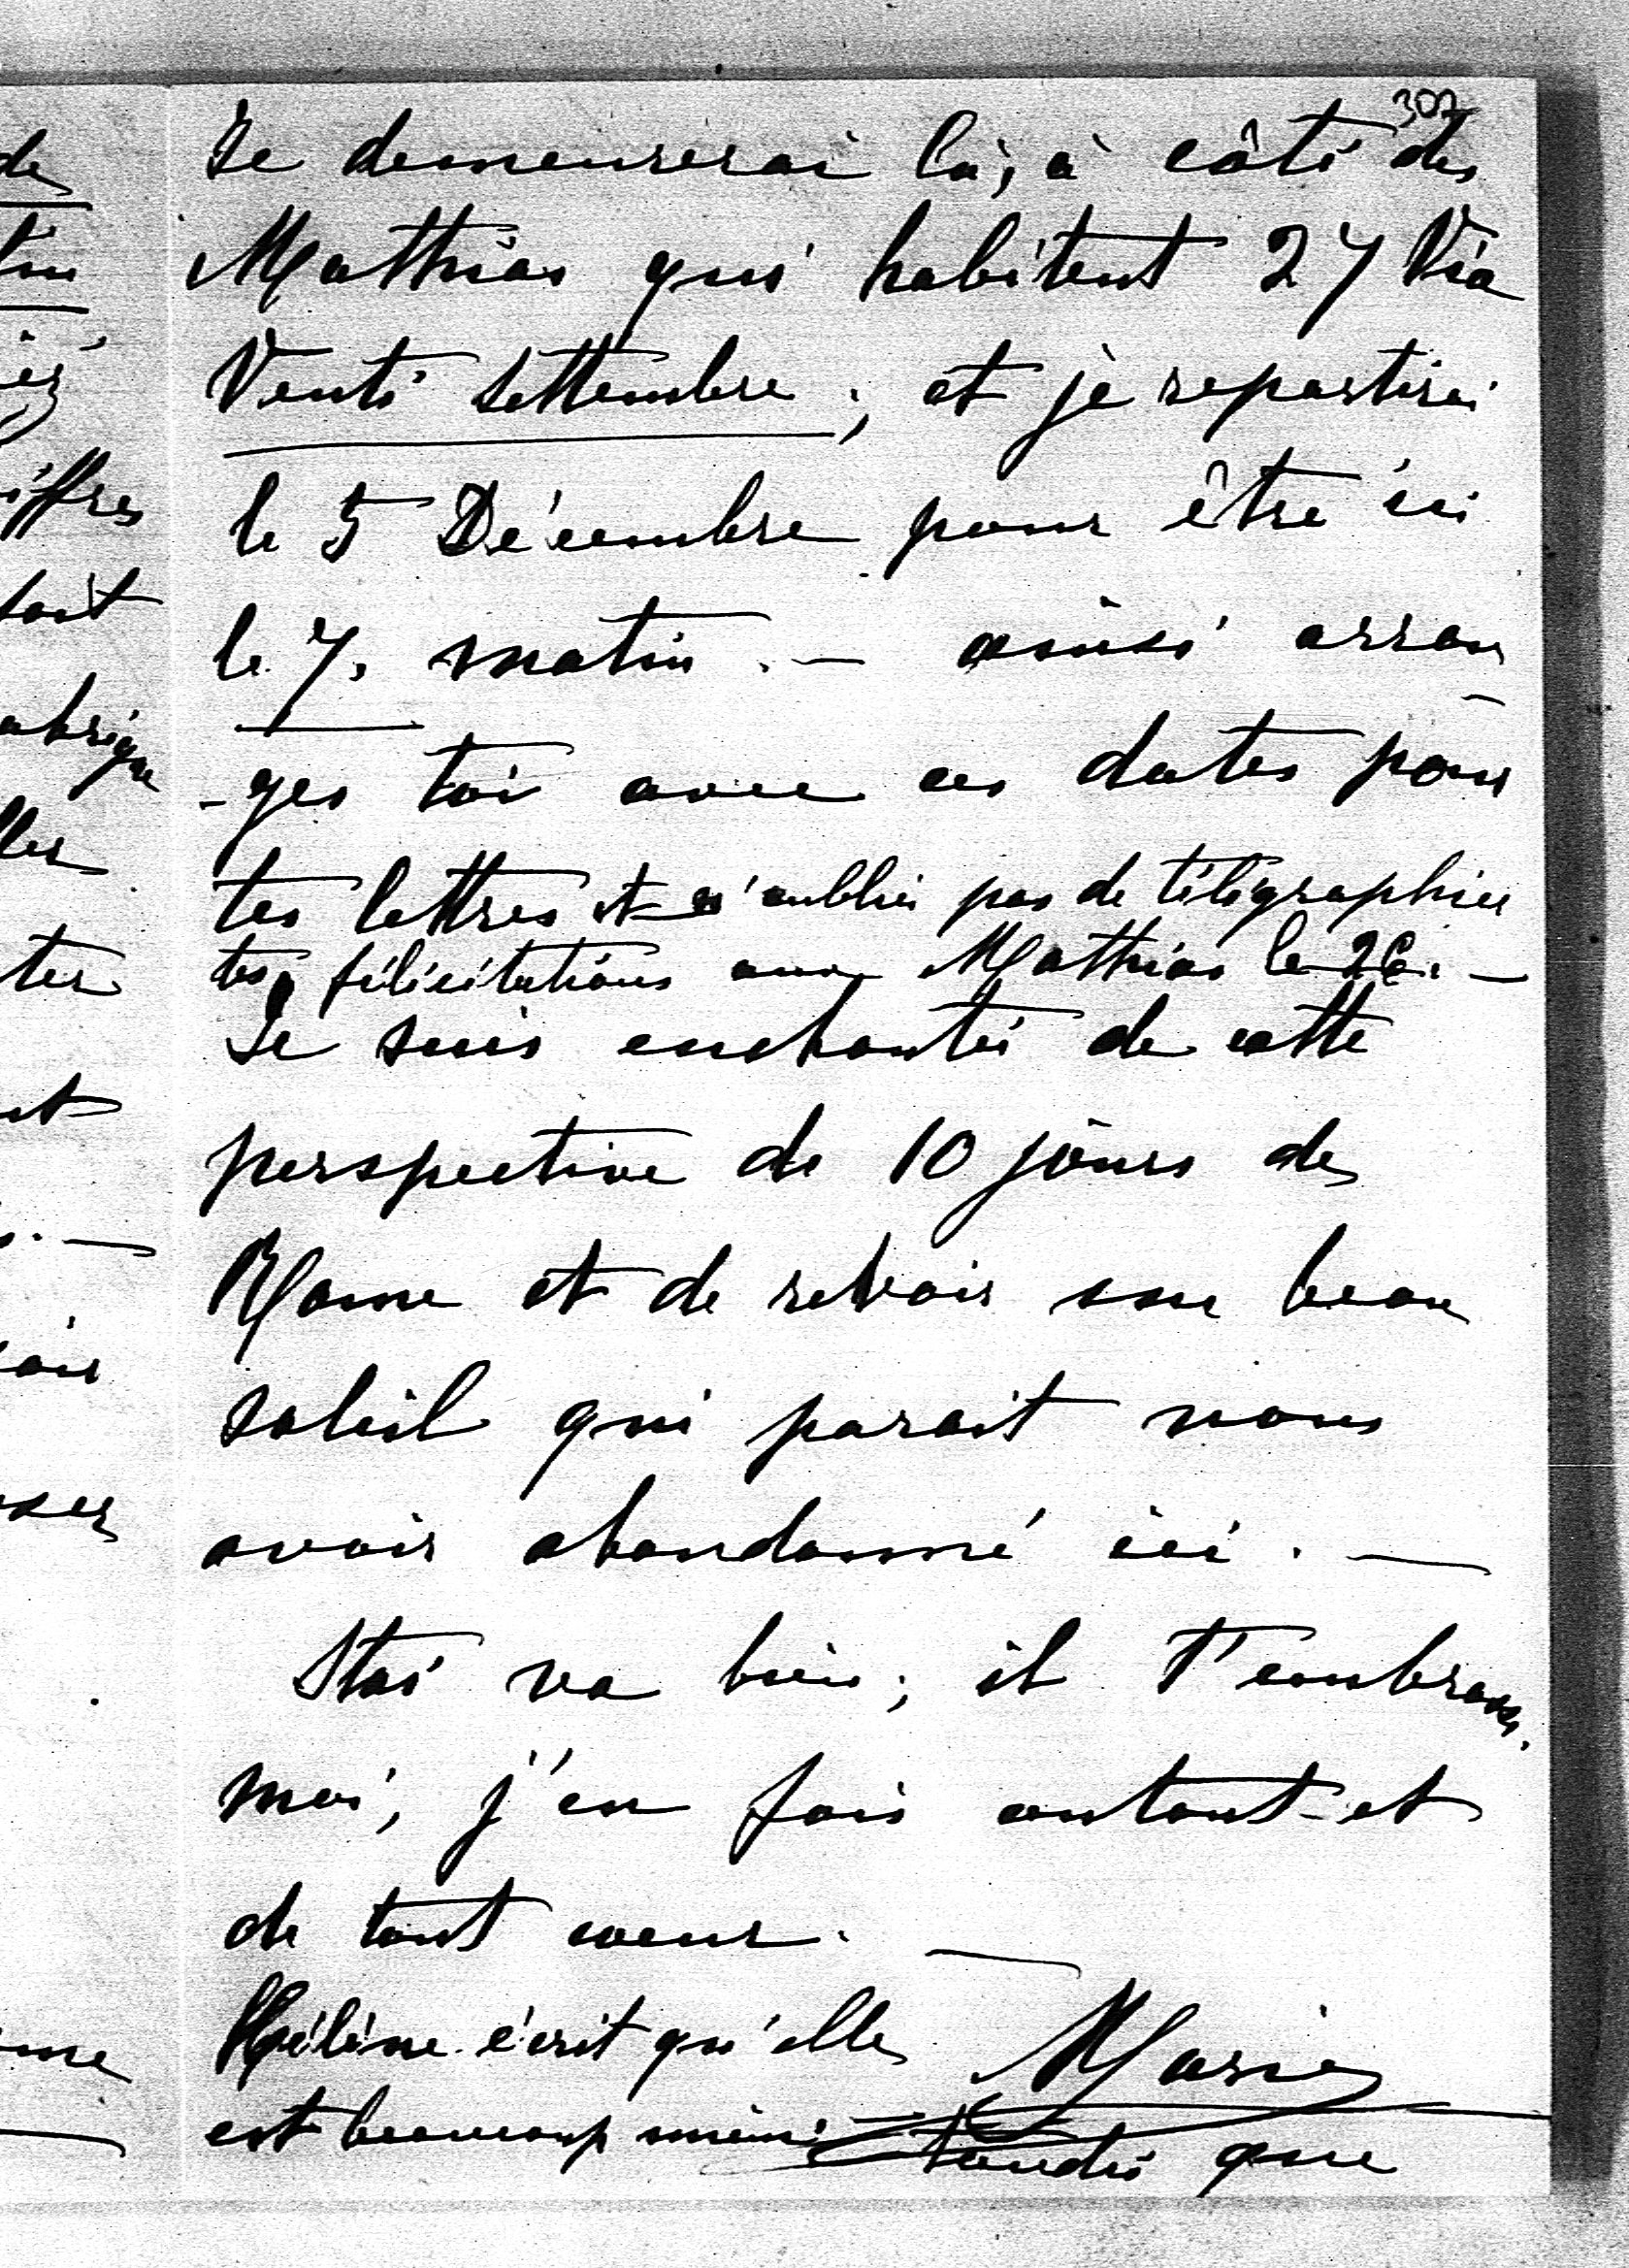 307
Je demeurerai là, à côté des
Mathias qui habitent 27 Via
Venti Settembre ; et je repartirai
le 5 Décembre pour être ici
le 7. matin. — ainsi arran
-ges toi avec ces dates pour
tes lettres et n'oublies pas de télégraphier
tes félicitations aux Mathias le 26. —
Je suis enchantée de cette
perspective de 10 jours de
Rome et de revoir son beau
soleil qui parait nous
avoir abandonné ici. —
Stas va bien ; il t'embrasse.
moi, j'en fais autant et
de tout coeur. —
Hélène écrit qu'elle
Marie
est beaucoup mieux
tandis que
de
iffres
fait
abrique
ter
et
oir